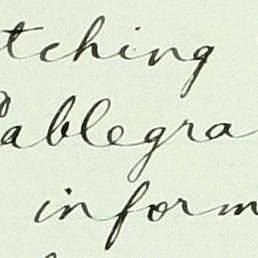 tching
Cablegra
inform